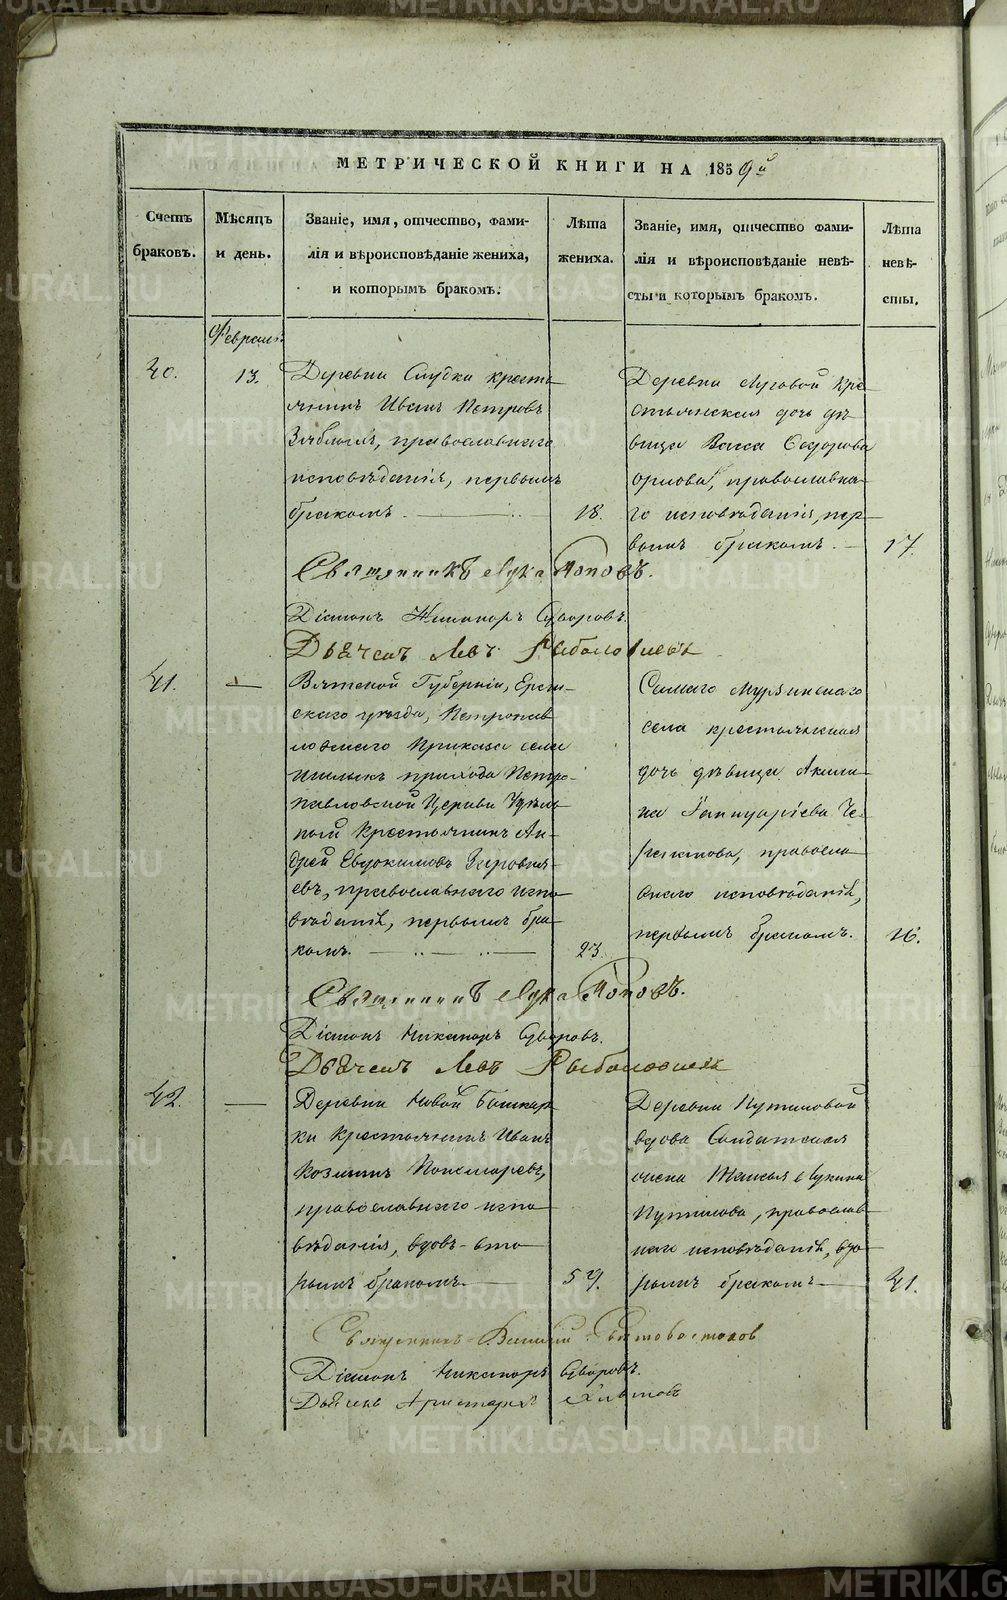 МЕТРИЧЕСКОЙ КНИГИ НА 1859й
Счетъ браковъ.
Мѣсяцъ и день.
Званіе, имя, отчество, фами-
лія и вѣроисповѣданіе жениха,
и которымъ бракомъ.
Лѣта жениха.
Званіе, имя, отчество фами-
лія и вѣроисповѣданіе невѣ-
сты и которымъ бракомъ.
Лѣта невѣ-
сты.
Февраль
40.
13.
Деревни Слудки кресть
янинъ Иванъ Петровъ
православнаго
исповѣданія, первымъ
бракомъ.
18.
Деревни Луговой кре
стьянская дочь дѣ
вица Васса Сидорова
Орлова, православна-
го исповѣданія, пер
вымъ бракомъ.
17.
Священникъ Лука Поповъ.
Діаконъ Никаноръ
Дьячекъ Левъ
41.
Вятской Губерніи,
скаго уѣзда, Петропав
ловскаго Приказа села
прихода Петро-
павловской Церкви Удѣль
ный крестьянинъ Ан-
дрей Евдокимовъ
евъ, православнаго испо
вѣданія, первымъ бра
комъ.
23.
Самаго Мурзинскаго
села крестьянская
дочь дѣвица Акили-
на
православ
наго исповѣданія,
первымъ бракомъ.
16.
Священникъ Лука Поповъ.
Діаконъ Никаноръ
Дьячекъ Левъ
42.
Деревни Новой Башкар
ки крестьянинъ Иванъ
Козминъ Пономаревъ,
православнаго испо
вѣданія, вдовъ-вто
рымъ бракомъ.
59.
Деревни Путиловой
вдова Солдатская
жена Лукина
Путилова, православ
наго исповѣданія, вто
рымъ бракомъ
41.
Священникъ Василій
Діаконъ Никаноръ
Аристархъ
METRIKI.GASO-URAL.RU